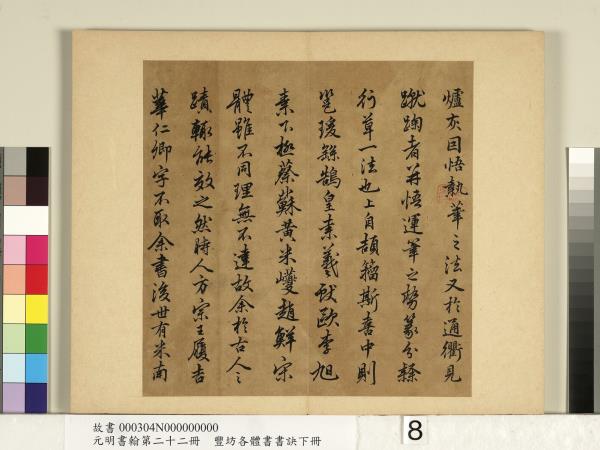 爐灰因悟執筆之法又於通衢見
蹴踘者并悟運筆之勢篆分隸
行草一法也上自頡籀斯喜中則
邕瑗繇鵠皇索羲獻歐李旭
素下極蔡蘇黃米巙趙鮮宋
體雖不同理無不達故余於古人之
蹟輒能效之然時人方宗王履吉
華仁卿字不取余書後世有米南
故書 000304N000000000
元明書翰第二十二冊 豐坊各體書書訣下冊
8